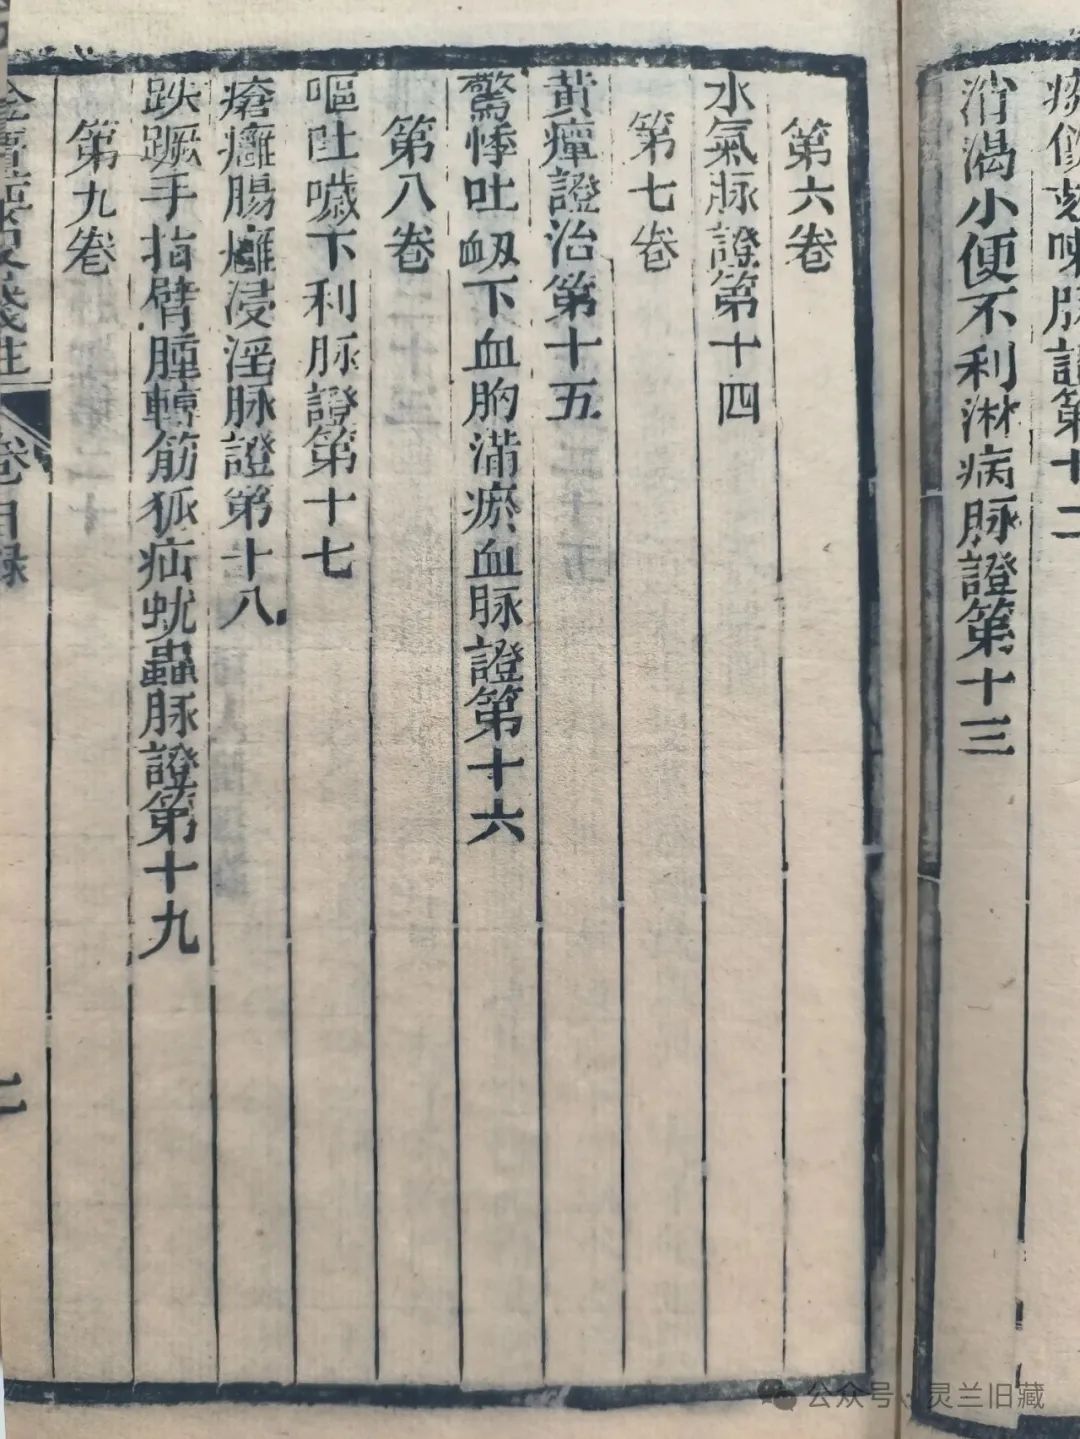 痰飲欬嗽脉證第十二
消渴小便不利淋病脉證第十三
第六卷
水氣脉證第十四
第七卷
黄癉證治第十五
驚悸吐衂下血胷滿瘀血脉證第十六
第八卷
嘔吐噦下利脉證第十七
瘡癰腸癰浸淫脉證第十八
趺蹶手指臂腫轉筋狐疝蚘蟲脉證第十九
第九卷
卷目録
二
公众号·灵兰旧藏